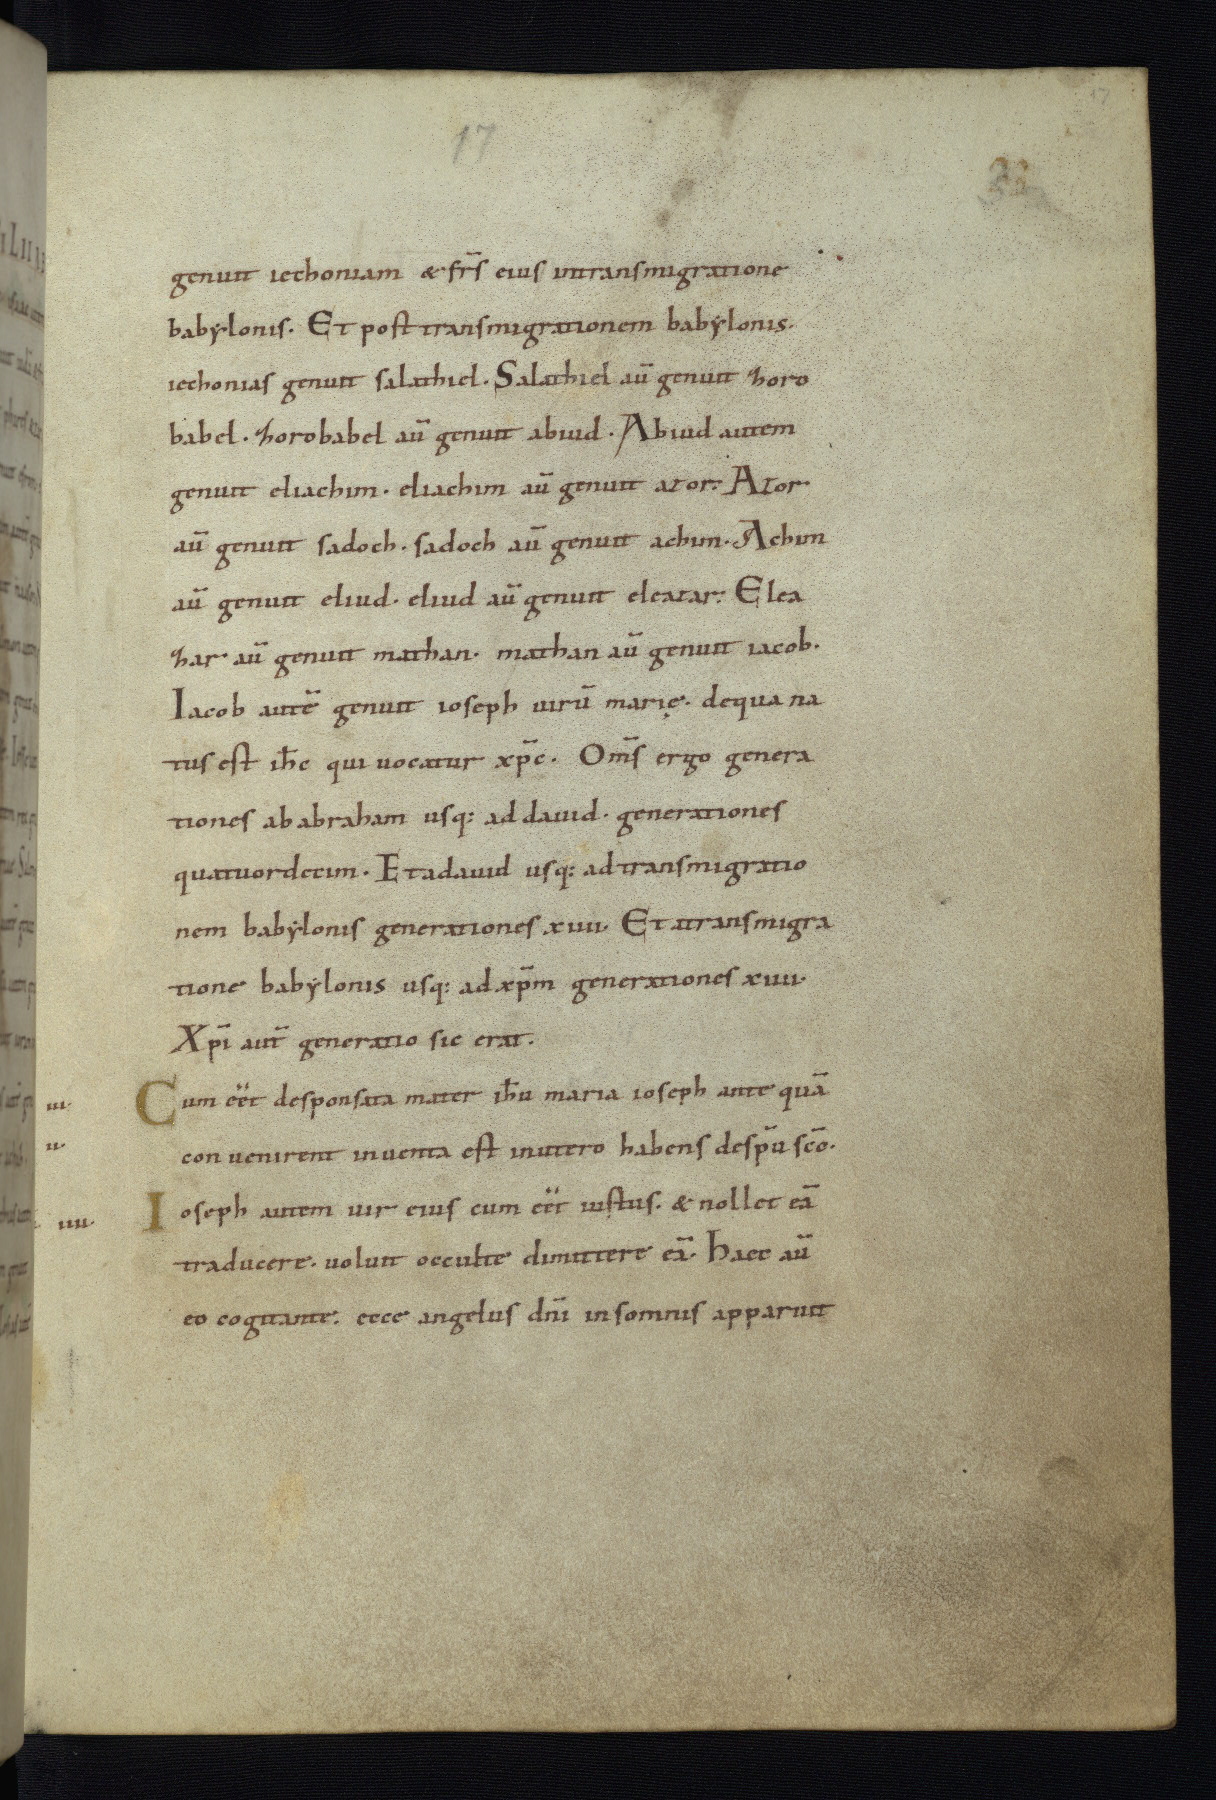 17
17
33
genuit iechoniam & fr̄s eius intransmigratione
babẏlonis. Et post transmigrationem babẏlonis.
iechonias genuit salathiel. Salathiel aū genuit zoro
babel. zorobabel aū genuit abiud. Abiud autem
genuit eliachim. eliachim aū genuit azor. Azor
aū genuit sadoch. sadoch aū genuit achim. Achim
aū genuit eliud. eliud aū genuit eleazar. Elea
zar aū genuit mathan. mathan aū genuit iacob.
Iacob autē genuit ioseph uirū marię. dequa na
tus est ih̄c qui uocatur xp̄c. Om̄s ergo genera
tiones ababraham usq; addauid. generationes
quatuordecim. Etadauid usq; adtransmigratio
nem babẏlonis generationes xiiii. Et atransmigra
tione babẏlonis usq; adxp̄m generationes xiiii.
Xp̄i aut̄ generatio sic erat.
iii. Cum eēt desponsata mater ih̄u maria ioseph ante quā
u. conuenirent inuenta est inutero habens desp̄u sc̄o.
iiii. Ioseph autem uir eius cum eēt iustus. & nollet eā
traducere. uoluit occulte dimittere eā. haec aū
eo cogitante. ecce angelus dn̄i insomnis apparuit